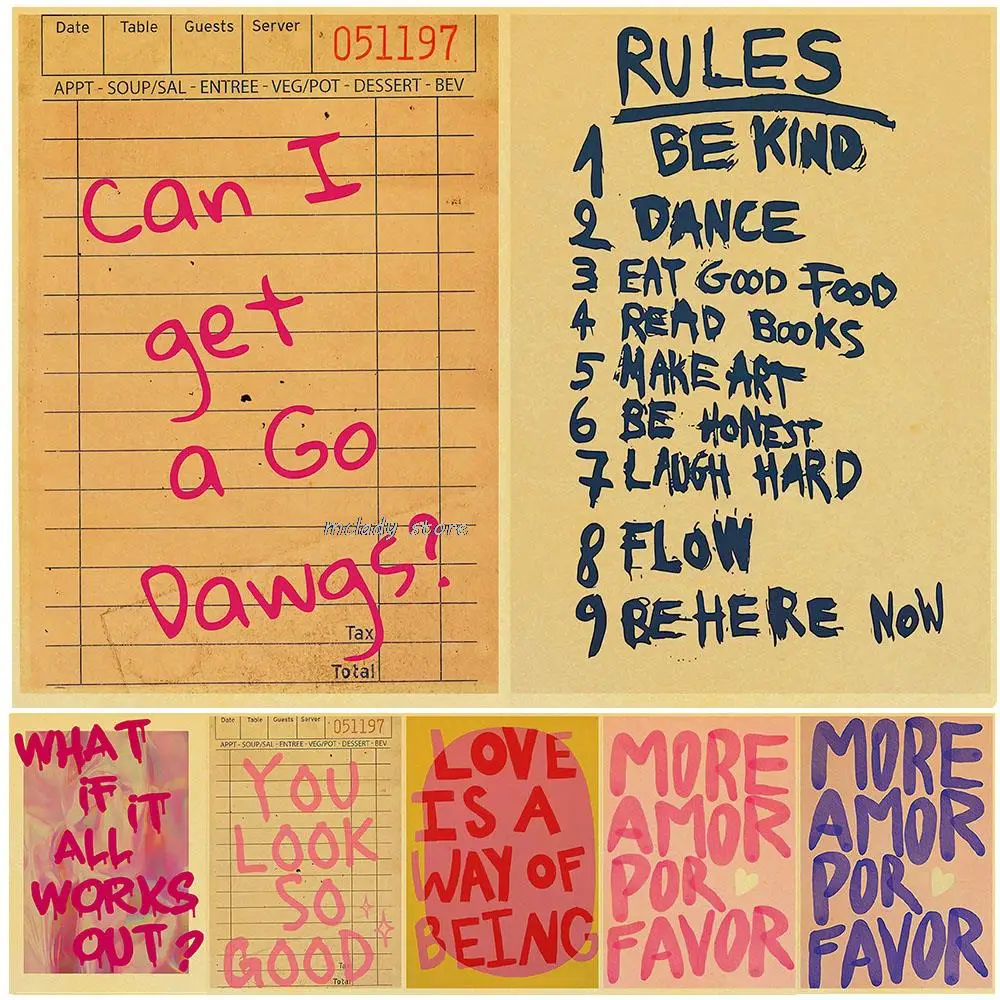 Date Table Guests Server 051197
APPT - SOUP/SAL - ENTREE - VEG/POT - DESSERT - BEV
Can I
get
a Go
mclady store
Dawgs?
Tax
Total
RULES
1 BE KIND
2 DANCE
3 EAT GOOD FOOD
4 READ BOOKS
5 MAKE ART
6 BE HONEST
7 LAUGH HARD
8 FLOW
9 BE HERE NOW
WHAT
iF iT
ALL
WORKS
OUT?
Date Table Guests Server 051197
APPT - SOUP/SAL - ENTREE - VEG/POT - DESSERT - BEV
YOU
LOOK
SO
GOOD
Tax
Total
LOVE
IS A
WAY OF
BEING
MORE
AMOR
POR
FAVOR
MORE
AMOR
POR
FAVOR